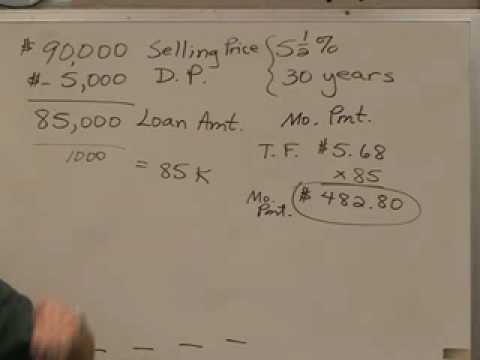 $90,000 Selling Price 5 1/2 %
$- 5,000 D.P. 30 years
85,000 Loan Amt. Mo. Pmt.
1000 = 85K
T.F. $5.68
x 85
Mo. Pmt. $ 482.80